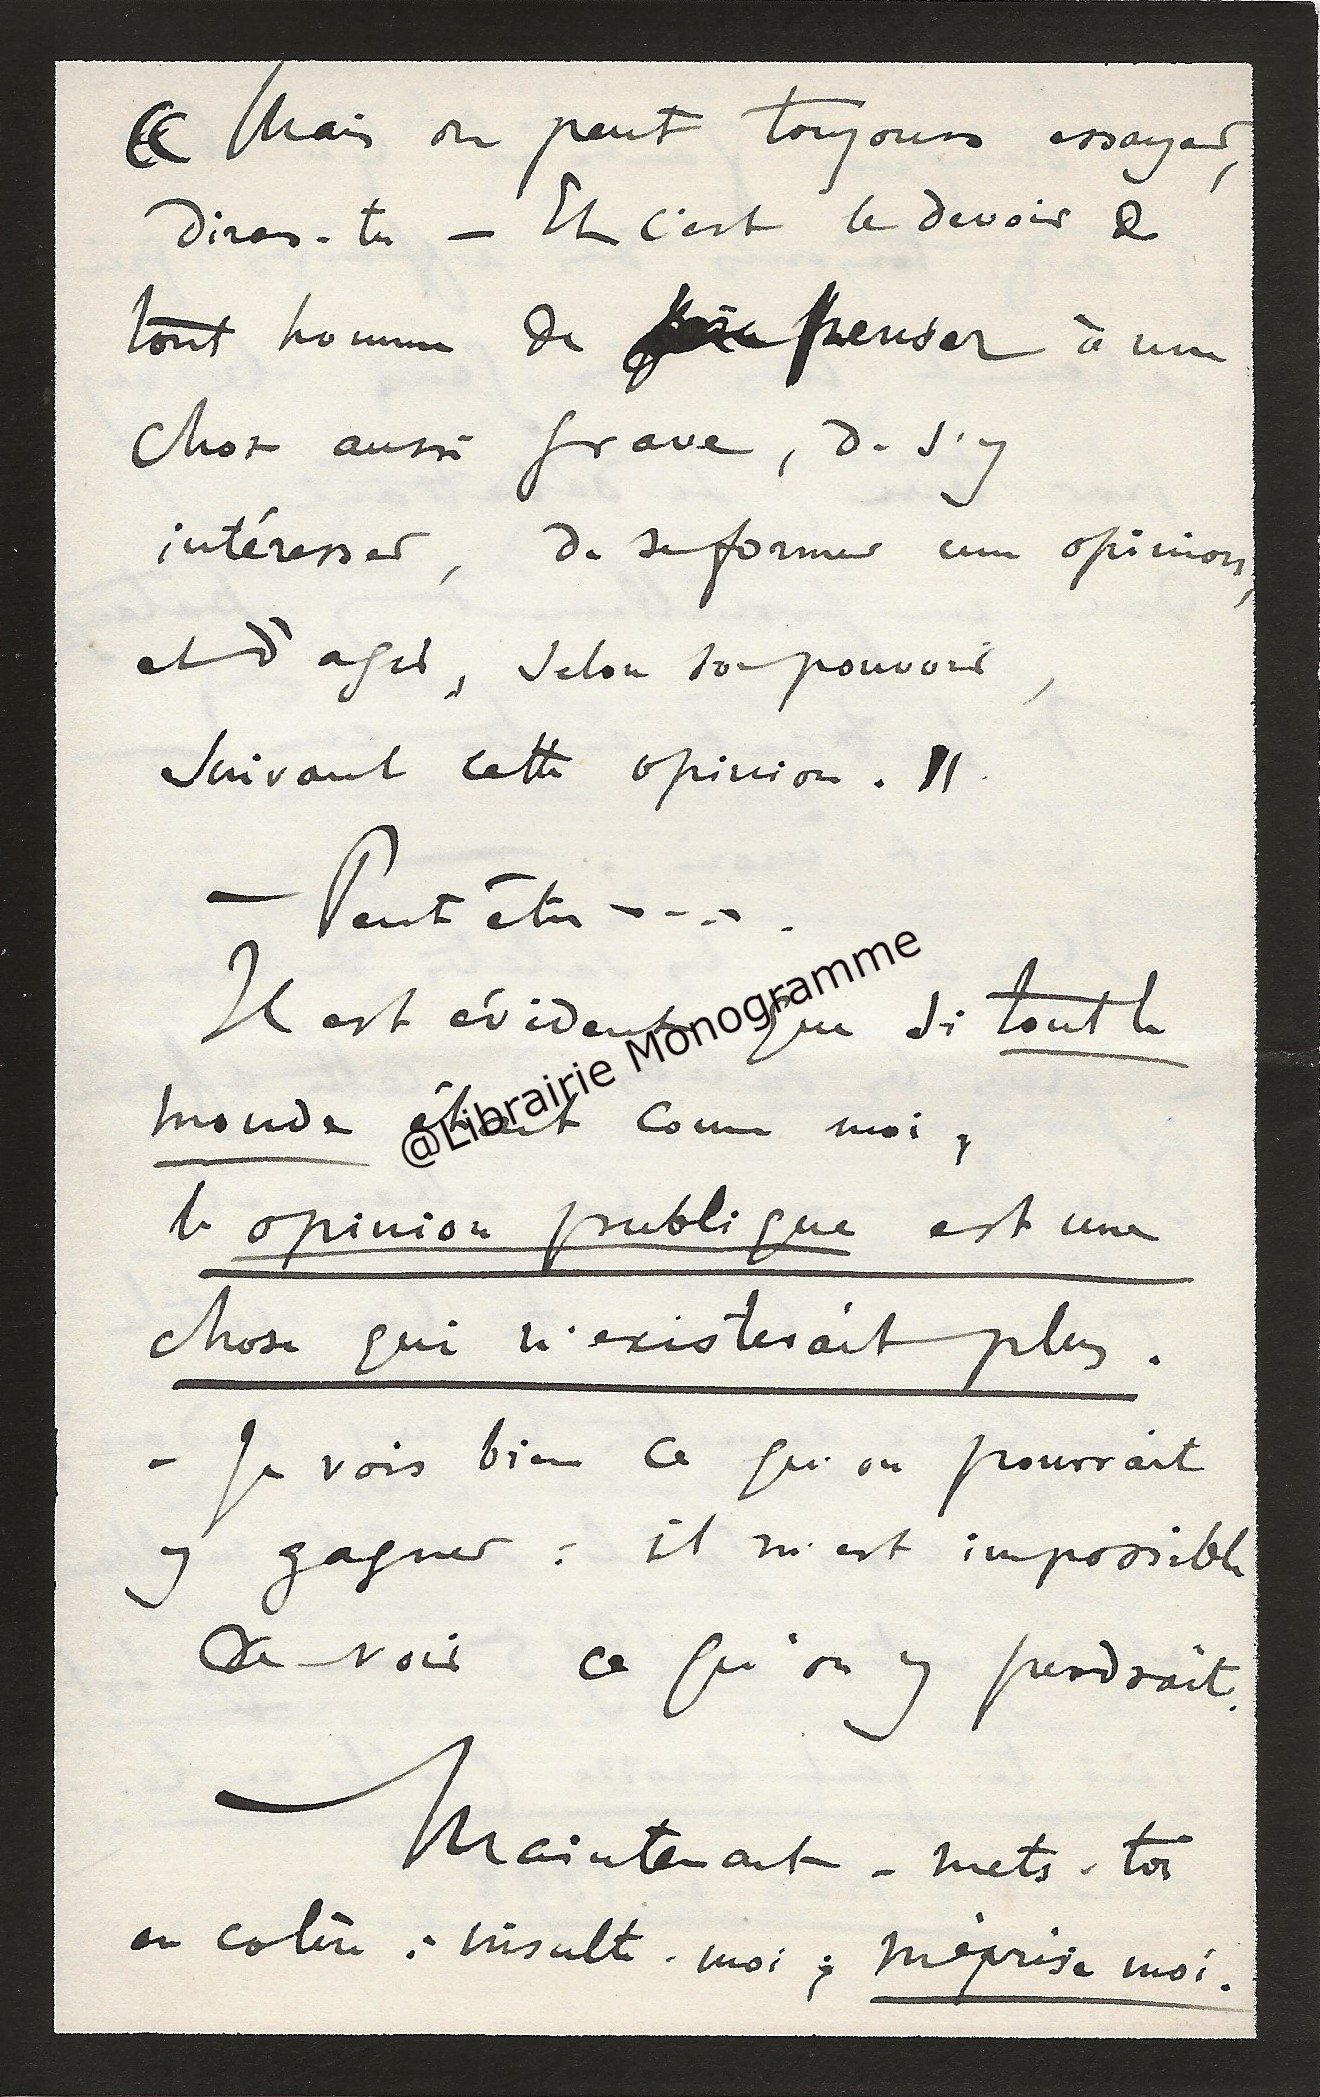 « Mais on peut toujours essayer,
diras-tu — Et c'est le devoir de
tout homme de penser à une
chose aussi grave, de s'y
intéresser, de se former une opinion,
et d'agir, selon son pouvoir,
suivant cette opinion. »
— Peut être - - - .
Il est évident que si tout le
monde était comme moi,
l'opinion publique est une
chose qui n'existerait plus.
- Je vois bien ce qu'on pourrait
y gagner : il m'est impossible
de voir ce qu'on y perdrait.
— Maintenant - mets-toi
en colère : insulte-moi ; méprise moi.
@Librairie Monogramme